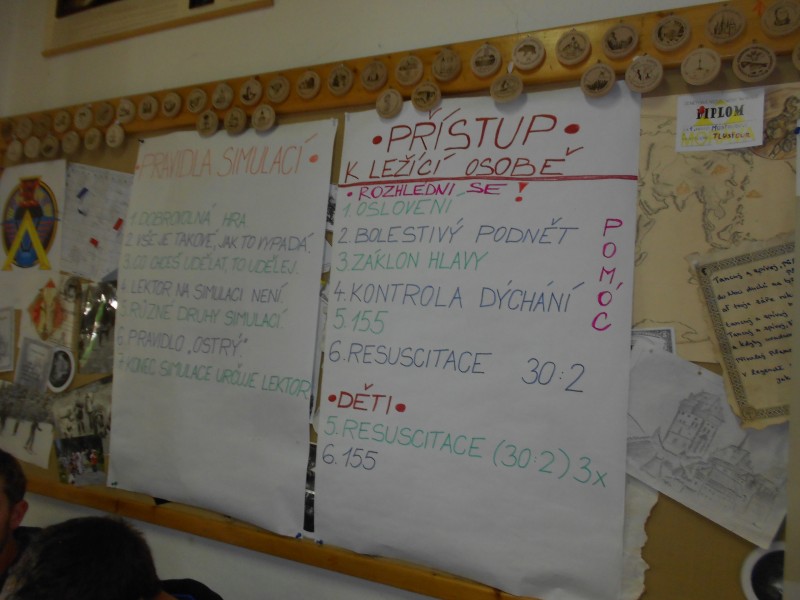 PRAVIDLA SIMULACÍ •
1. DOBROVOLNÁ HRA
2. VŠE JE TAKOVÉ, JAK TO VYPADÁ.
3. CO CHCEŠ UDĚLAT, TO UDĚLEJ.
4. LEKTOR NA SIMULACI NENÍ.
5. RŮZNÉ DRUHY SIMULACÍ.
6. PRAVIDLO „OSTRÝ“.
7. KONEC SIMULACE URČUJE LEKTOR
• PŘÍSTUP •
K LEŽÍCÍ OSOBĚ
• ROZHLÉDNI SE!
1. OSLOVENÍ
2. BOLESTIVÝ PODNĚT
3. ZÁKLON HLAVY
4. KONTROLA DÝCHÁNÍ
5. 155
6. RESUSCITACE 30:2
POMÓC
• DĚTI •
5. RESUSCITACE (30:2) 3x
6. 155
DIPLOM